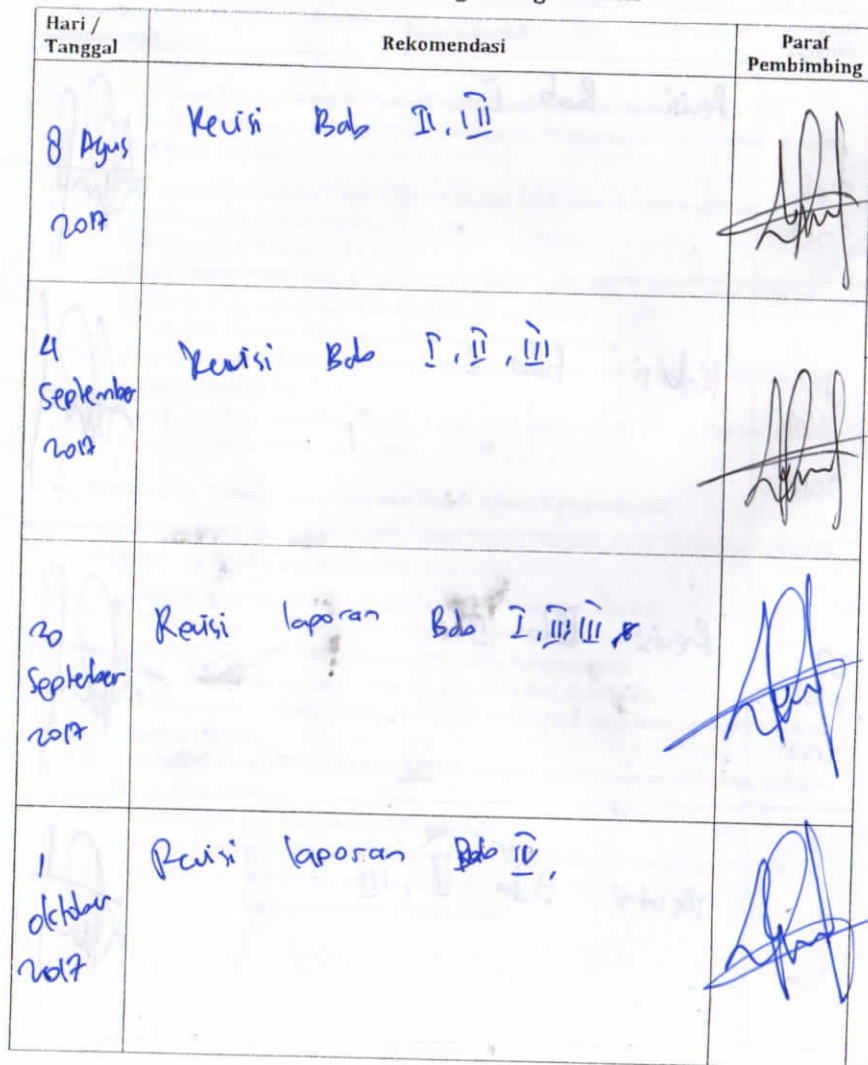 Hari /
Tanggal
Rekomendasi
Paraf
Pembimbing
8 Agus
2017
Revisi Bab II, III
4
September
2017
Revisi Bab I, II, III
20
September
2017
Revisi laporan Bab I, II, III
1
Oktober
2017
Revisi laporan Bab IV,